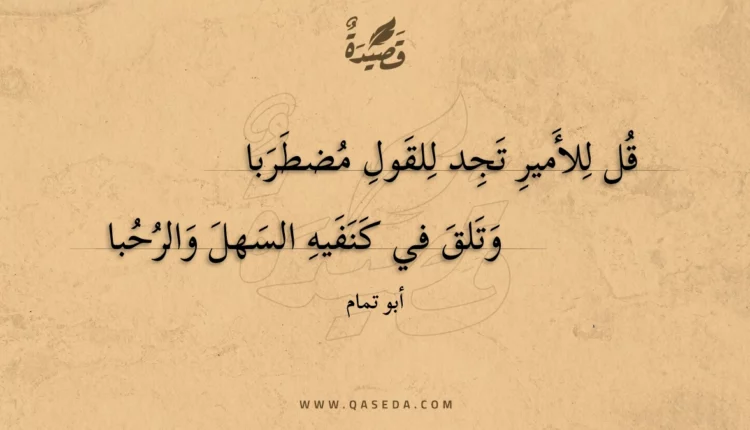 قَصِيْدَةٌ
قُل لِلأَميرِ تَجِد لِلقَولِ مُضطَرَبا
وَتَلقَ في كَنَفَيهِ السَهلَ وَالرُحُبا
أبو تمام
WWW.QASEDA.COM